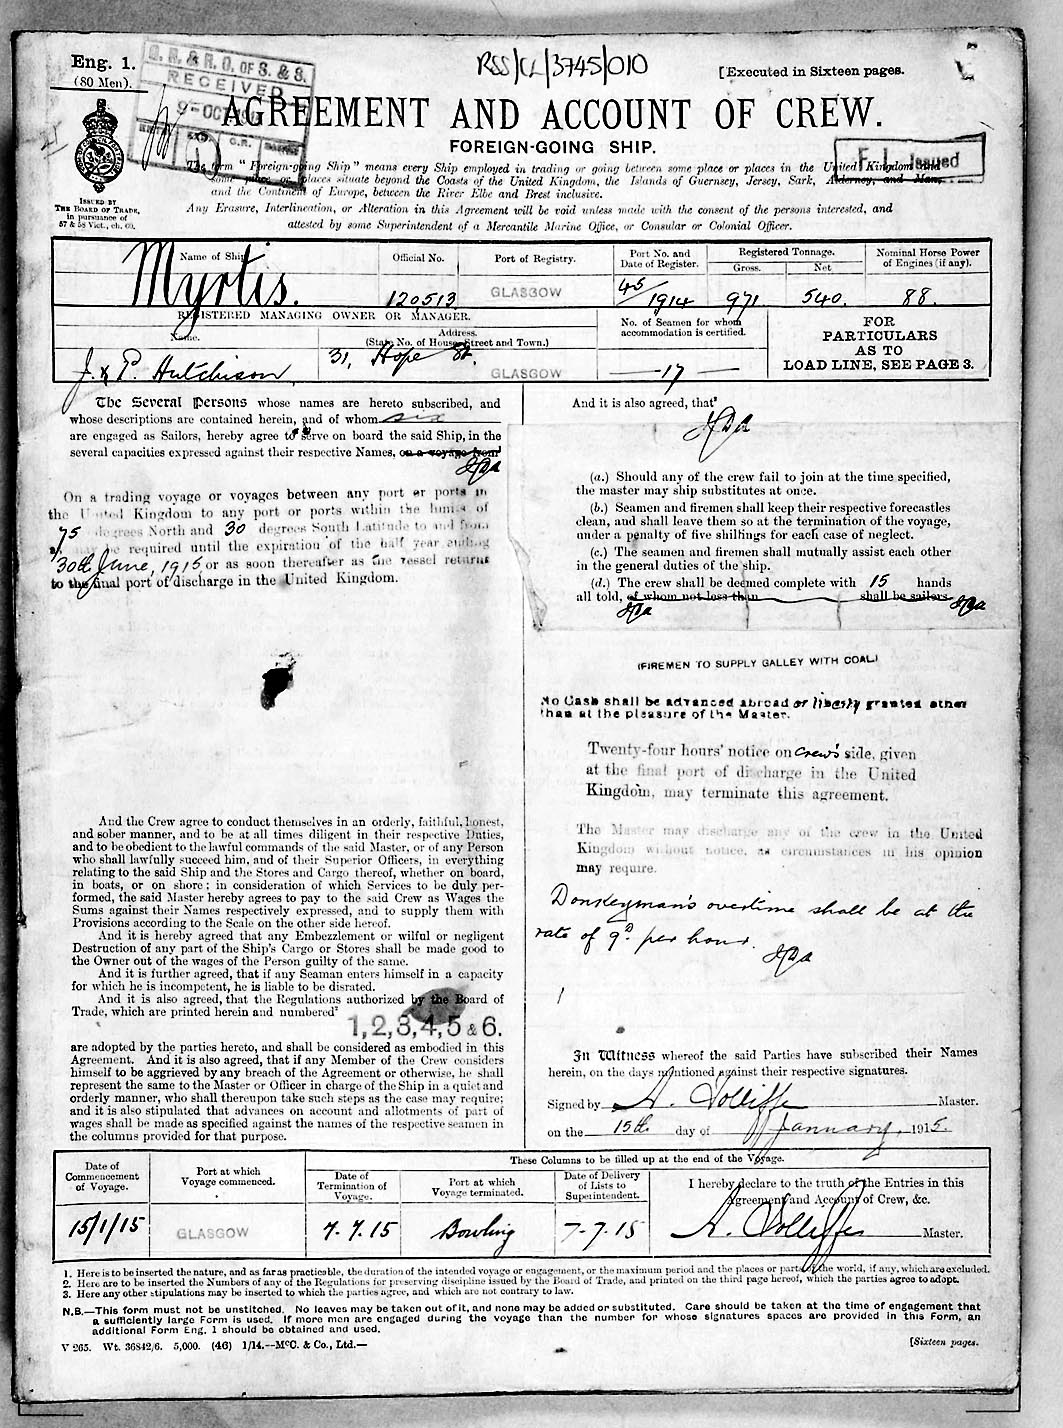 Eng. 1.
(80 Men).
G. R. & R. O. OF S. & S.
RECEIVED
9-OCT
RSS/CL/3745/010
[Executed in Sixteen pages.
AGREEMENT AND ACCOUNT OF CREW.
FOREIGN-GOING SHIP.
F.I. Issued
The term "Foreign-going Ship" means every Ship employed in trading or going between some place or places in the United Kingdom and
some place or places situate beyond the Coasts of the United Kingdom, the Islands of Guernsey, Jersey, Sark, Alderney, and Man,
and the Continent of Europe, between the River Elbe and Brest inclusive.
ISSUED BY
THE BOARD OF TRADE,
in pursuance of
57 & 58 Vict., ch. 60.
Any Erasure, Interlineation, or Alteration in this Agreement will be void unless made with the consent of the persons interested, and
attested by some Superintendent of a Mercantile Marine Office, or Consular or Colonial Officer.
Name of Ship
Official No.
Port of Registry.
Port No. and
Date of Register.
Registered Tonnage.
Gross.
Net
Nominal Horse Power
of Engines (if any).
Myrtis.
120513
GLASGOW
45/1914
971
540.
88.
REGISTERED MANAGING OWNER OR MANAGER.
Name.
Address.
(State No. of House, Street and Town.)
No. of Seamen for whom
accommodation is certified.
FOR
PARTICULARS
AS TO
LOAD LINE, SEE PAGE 3.
J. & P. Hutchison,
31, Hope St.
GLASGOW
17
The Several Persons whose names are hereto subscribed, and
whose descriptions are contained herein, and of whom six
are engaged as Sailors, hereby agree to serve on board the said Ship, in the
several capacities expressed against their respective Names, on a voyage from1
On a trading voyage or voyages between any port or ports in
the United Kingdom to any port or ports within the limits of
75 degrees North and 30 degrees South Latitude to and from
as may be required until the expiration of the half year ending
30th June, 1915, or as soon thereafter as the vessel returns
to the final port of discharge in the United Kingdom.
And the Crew agree to conduct themselves in an orderly, faithful, honest,
and sober manner, and to be at all times diligent in their respective Duties,
and to be obedient to the lawful commands of the said Master, or of any Person
who shall lawfully succeed him, and of their Superior Officers, in everything
relating to the said Ship and the Stores and Cargo thereof, whether on board,
in boats, or on shore; in consideration of which Services to be duly per-
formed, the said Master hereby agrees to pay to the said Crew as Wages the
Sums against their Names respectively expressed, and to supply them with
Provisions according to the Scale on the other side hereof.
And it is hereby agreed that any Embezzlement or wilful or negligent
Destruction of any part of the Ship's Cargo or Stores shall be made good to
the Owner out of the wages of the Person guilty of the same.
And it is further agreed, that if any Seaman enters himself in a capacity
for which he is incompetent, he is liable to be disrated.
And it is also agreed, that the Regulations authorized by the Board of
Trade, which are printed herein and numbered2
1,2,3,4,5 & 6.
are adopted by the parties hereto, and shall be considered as embodied in this
Agreement. And it is also agreed, that if any Member of the Crew considers
himself to be aggrieved by any breach of the Agreement or otherwise, he shall
represent the same to the Master or Officer in charge of the Ship in a quiet and
orderly manner, who shall thereupon take such steps as the case may require;
and it is also stipulated that advances on account and allotments of part of
wages shall be made as specified against the names of the respective seamen in
the columns provided for that purpose.
And it is also agreed, that3
(a.) Should any of the crew fail to join at the time specified,
the master may ship substitutes at once.
(b.) Seamen and firemen shall keep their respective forecastles
clean, and shall leave them so at the termination of the voyage,
under a penalty of five shillings for each case of neglect.
(c.) The seamen and firemen shall mutually assist each other
in the general duties of the ship.
(d.) The crew shall be deemed complete with 15 hands
all told, of whom not less than shall be sailors
(FIREMEN TO SUPPLY GALLEY WITH COAL)
No Cash shall be advanced abroad or liberty granted other
than at the pleasure of the Master.
Twenty-four hours' notice on crew's side, given
at the final port of discharge in the United
Kingdom, may terminate this agreement.
The Master may discharge any of the crew in the United
Kingdom without notice, as circumstances in his opinion
may require.
Donkeyman's overtime shall be at the
rate of 9d per hour.
In Witness whereof the said Parties have subscribed their Names
herein, on the days mentioned against their respective signatures.
Signed by A. Jolliffe Master.
on the 15th day of January, 1915.
Date of
Commencement
of Voyage.
Port at which
Voyage commenced.
These Columns to be filled up at the end of the Voyage.
Date of
Termination of
Voyage.
Port at which
Voyage terminated.
Date of Delivery
of Lists to
Superintendent.
I hereby declare to the truth of the Entries in this
Agreement and Account of Crew, &c.
15/1/15
GLASGOW
7.7.15
Bowling
7-7.15
A. Jolliffe Master.
1. Here is to be inserted the nature, and as far as practicable, the duration of the intended voyage or engagement, or the maximum period and the places or parts of the world, if any, which are excluded.
2. Here are to be inserted the Numbers of any of the Regulations for preserving discipline issued by the Board of Trade, and printed on the third page hereof, which the parties agree to adopt.
3. Here any other stipulations may be inserted to which the parties agree, and which are not contrary to law.
N.B.—This form must not be unstitched. No leaves may be taken out of it, and none may be added or substituted. Care should be taken at the time of engagement that
a sufficiently large Form is used. If more men are engaged during the voyage than the number for whose signatures spaces are provided in this Form, an
additional Form Eng. 1 should be obtained and used.
V 265. Wt. 36842/6. 5,000. (46) 1/14.—McC. & Co., Ltd.—
[Sixteen pages.